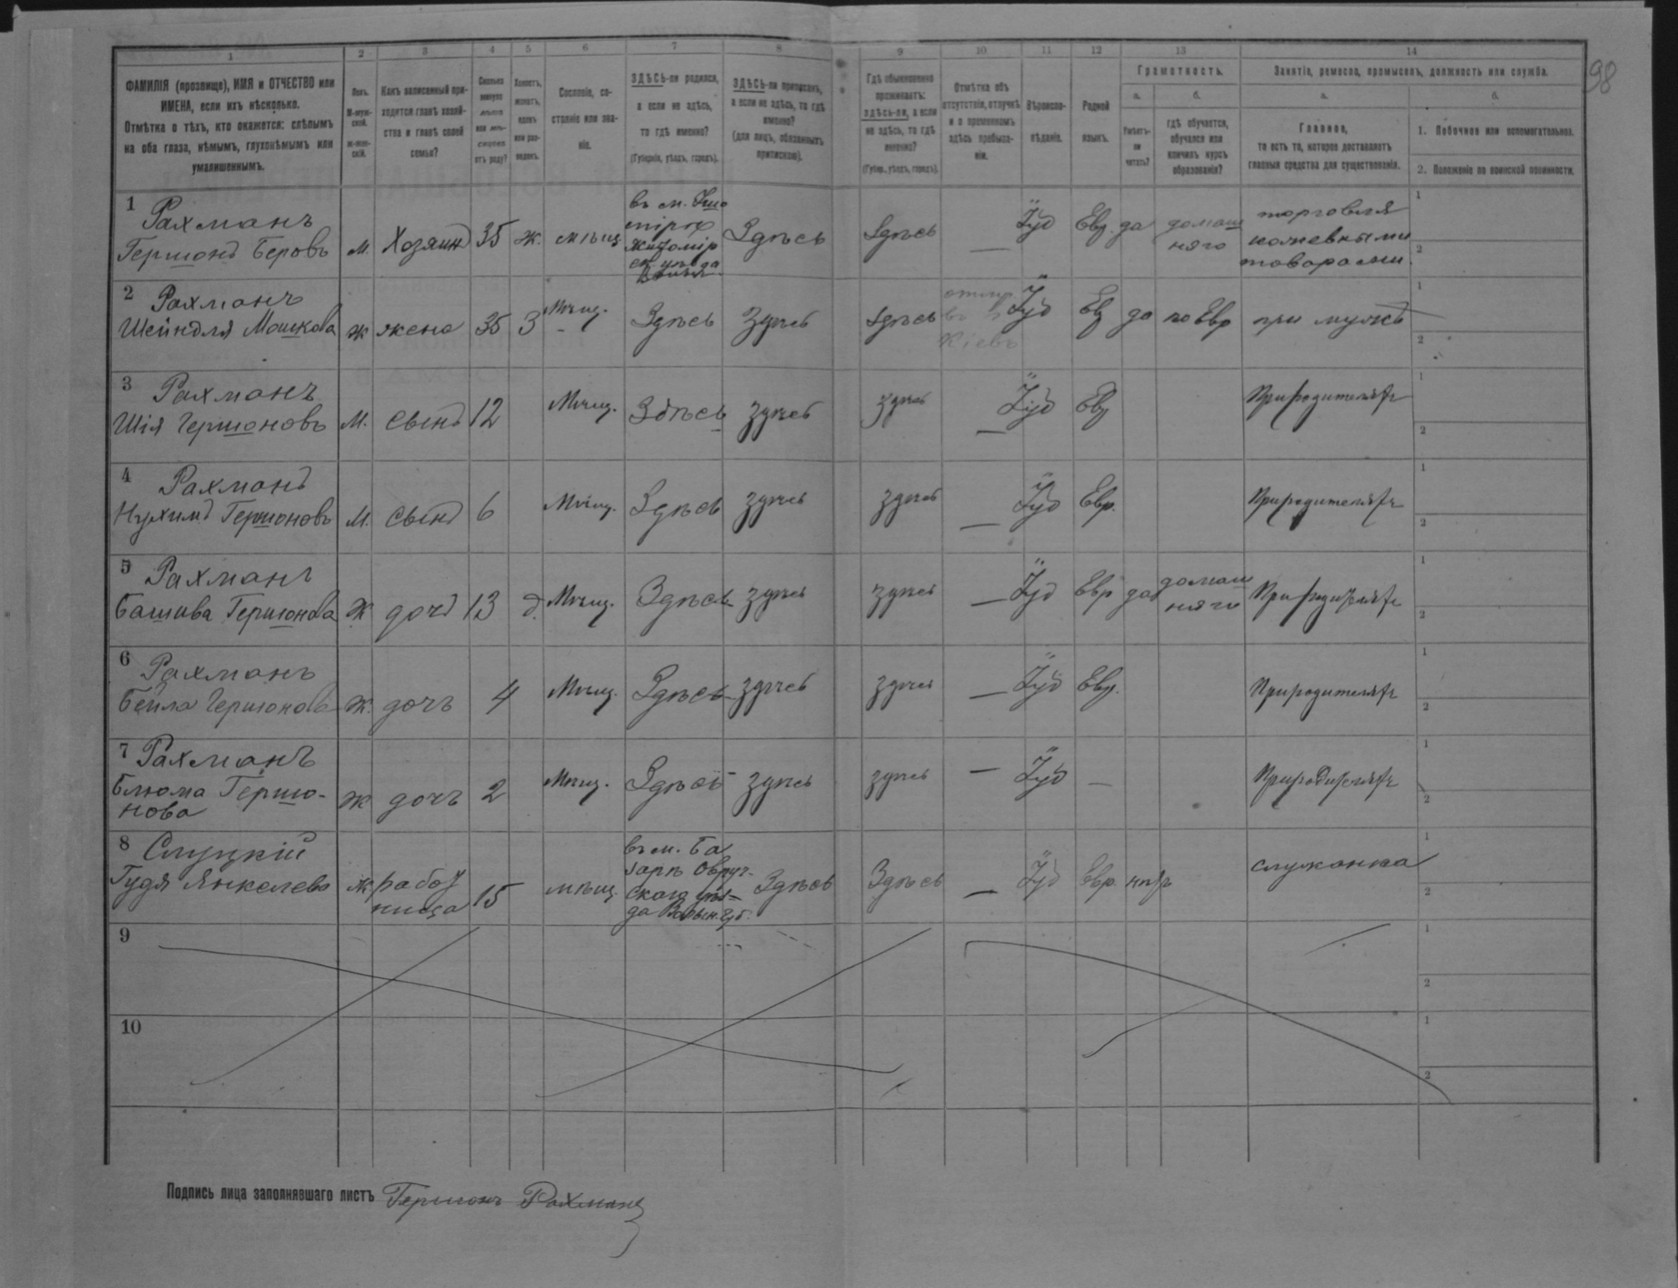 98
1 2 3 4 5 6 7 8 9 10 11 12 13 14
ФАМИЛІЯ (прозвище), ИМЯ и ОТЧЕСТВО или
ИМЕНА, если ихъ нѣсколько.
Отмѣтка о тѣхъ, кто окажется: слѣпымъ
на оба глаза, нѣмымъ, глухонѣмымъ или
умалишеннымъ.
Полъ.
М-муж-
ской.
ж-жен-
скій.
Какъ записанный при-
ходится главѣ хозяй-
ства и главѣ своей
семьи?
Сколько
минуло
лѣтъ
или мѣ-
сяцевъ
отъ роду?
Холостъ,
женатъ,
вдовъ
или раз-
веденъ.
Сословіе, со-
стояніе или зва-
ніе.
ЗДѢСЬ-ли родился,
а если не здѣсь,
то гдѣ именно?
(Губернія, уѣздъ, городъ).
ЗДѢСЬ-ли приписанъ,
а если не здѣсь, то гдѣ
именно?
(для лицъ, обязанныхъ
припискою).
Гдѣ обыкновенно
проживаетъ:
здѣсь-ли, а если
не здѣсь, то гдѣ
именно?
(Губер., уѣздъ, городъ).
Отмѣтка объ
отсутствіи, отлучкѣ
и о временномъ
здѣсь пребыва-
ніи.
Вѣроиспо-
вѣданіе.
Родной
языкъ.
Грамотность.
а. б.
Умѣетъ-
ли
читать?
гдѣ обучается,
обучался или
кончилъ курсъ
образованія?
Занятіе, ремесло, промыселъ, должность или служба.
а. б.
Главное,
то есть то, которое доставляетъ
главныя средства для существованія.
1. Побочное или вспомогательное.
2. Положеніе по воинской повинности.
1 Рахманъ
Гершонъ Беровъ м. Хозяинъ 35 ж. мѣщ
въ м. Ушо
міръ
Житомір
ск уѣзда
Здѣсь Здѣсь — Іуд Евр. да домаш
няго
торговля
кожевными
товарами.
1
2
2 Рахманъ
Шейндля Мошкова ж жена 35 З Мѣщ. Здѣсь Здѣсь Здѣсь
въ
Кіевъ
Іуд Ев да по Евр при мужѣ
1
2
3 Рахманъ
Шія Гершоновъ м. сынъ 12 Мѣщ. Здѣсь здѣсь здѣсь — Іуд Ев При родителяхъ
1
2
4 Рахманъ
Нухимъ Гершоновъ м. сынъ 6 Мѣщ. Здѣсь здѣсь здѣсь — Іуд Евр. При родителяхъ
1
2
5 Рахманъ
Башива Гершонова ж дочь 13 д. Мѣщ. Здѣсь здѣсь здѣсь — Іуд Евр да домаш
няго При родителяхъ
1
2
6 Рахманъ
Бейла Гершонова ж. дочь 4 Мѣщ. Здѣсь здѣсь здѣсь — Іуд Евр. При родителяхъ
1
2
7 Рахманъ
Блюма Гершо-
нова ж дочь 2 Мѣщ. Здѣсь здѣсь здѣсь — Іуд — При родителяхъ
1
2
8 Слуцкій
Гудя Янкелева ж работ
ница 15 мѣщ.
въ м. Ба
зарѣ Овруч-
скаго уѣз-
да Волын. губ.
Здѣсь Здѣсь — Іуд Евр. нѣтъ служанка
1
2
9
1
2
10
1
2
Подпись лица заполнявшаго листъ Гершонъ Рахманъ